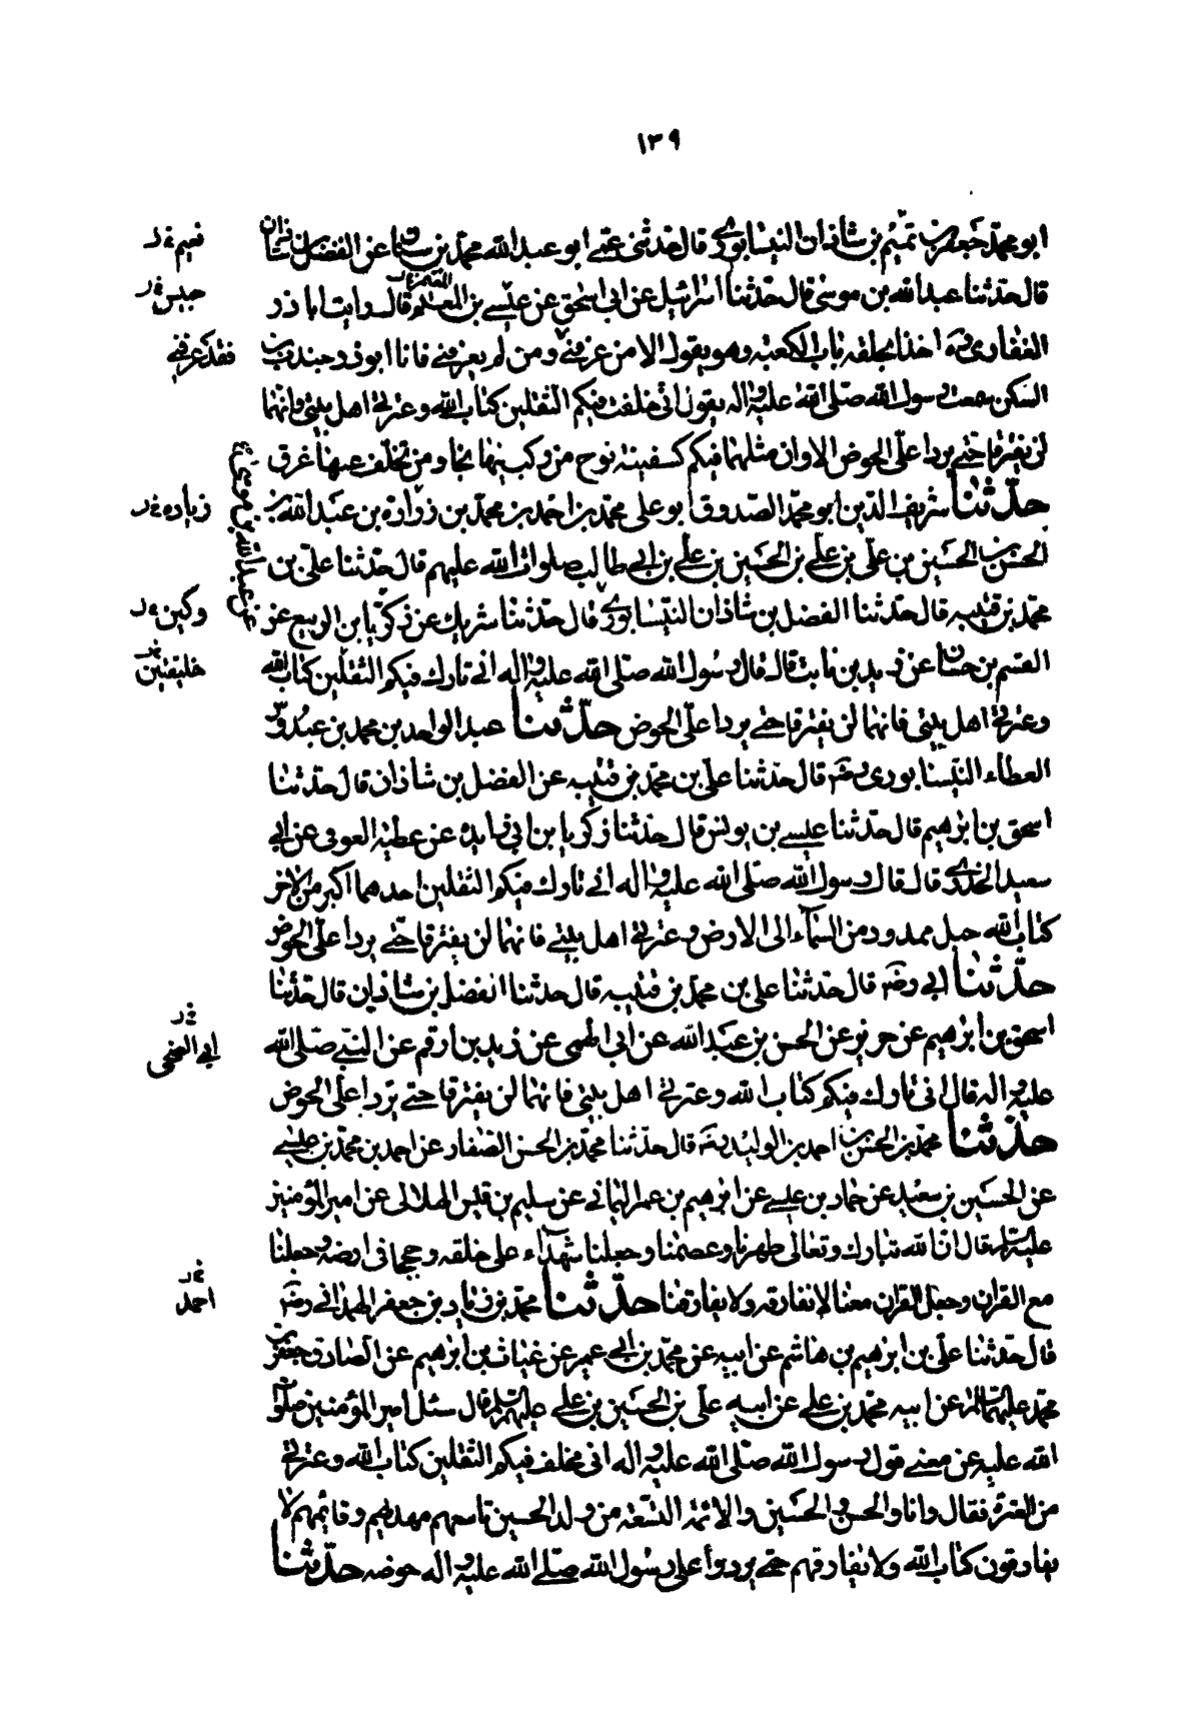 ١٣٩
ابو محمد جعفر بن نميم بن شاذان النيسابوري قال حدثني عمي ابو عبد الله محمد بن شاذان عن الفضل بن شاذان
نعيم خ ل
قال حدثنا عبدالله بن موسى قال حدثنا اسرائيل عن ابى اسحق عن عيسى بن المعتمر قال رايت ابا ذر
حبيش خ ل
الغفارى ره اخذا بحلقه باب الكعبه وهو يقول الا من عرفنى ومن لم يعرفنى فانا ابو ذر جندب بن
فقد عرفني
السكن سمعت رسول الله صلى الله عليه واله يقول انى خلفت فيكم الثقلين كتاب الله وعترتى اهل بيتى وانهما
لن يفترقا حتى يردا على الحوض الا وان مثلهما فيكم كسفينة نوح من ركب فيها نجا ومن تخلف عنها غرق
حدثنا شريف الدين ابو محمد الصدوق ابو على محمد بن احمد بن محمد بن زرارة بن عبد الله بن
زياره خ ل
الحسن بن الحسين بن على بن على بن الحسين بن على بن ابى طالب صلوات الله عليهم قال حدثنا على بن
محمد بن قتيبه قال حدثنا الفضل بن شاذان النيسابوري قال حدثنا
عن عبد الله بن موسى
شريك عن زكريا بن الربيع عن
وكين خ ل
القسم بن حسان عن زيد بن ثابت قال قال رسول الله صلى الله عليه واله انى تارك فيكم الثقلين كتاب الله
خليفتين خ ل
وعترتى اهل بيتى فانهما لن يفترقا حتى يردا على الحوض حدثنا عبد الواحد بن محمد بن عبدوس
العطاء النيسابورى رضه قال حدثنا على بن محمد بن قتيبه عن الفضل بن شاذان قال حدثنا
اسحق بن ابرهيم قال حدثنا عيسى بن يونس قال حدثنا زكريا بن ابى زايدة عن عطية العوفى عن ابى
سعيد الخدرى قال قال رسول الله صلى الله عليه واله انى تارك فيكم الثقلين احدهما اكبر من الاخر
كتاب الله حبل ممدود من السماء الى الارض وعترتى اهل بيتى فانهما لن يفترقا حتى يردا على الحوض
حدثنا ابى رضه قال حدثنا على بن محمد بن قتيبه قال حدثنا الفضل بن شاذان قال حدثنا
اسحق بن ابرهيم عن جرير عن الحسن بن عبد الله عن ابى الضحى عن زيد بن ارقم عن النبى صلى الله
ابى الضحى خ ل
عليه واله قال انى تارك فيكم كتاب الله وعترتى اهل بيتى فانهما لن يفترقا حتى يردا على الحوض
حدثنا محمد بن الحسن بن احمد بن الوليد رضه قال حدثنا محمد بن الحسن الصفار عن احمد بن محمد بن عيسى
عن الحسين بن سعيد عن حماد بن عيسى عن ابرهيم بن عمر اليمانى عن سليم بن قيس الهلالى عن امير المؤمنين
عليه السلام قال ان الله تبارك وتعالى طهرنا وعصمنا وجعلنا شهداء على خلقه وحججا فى ارضه وجعلنا
مع القران وجعل القران معنا لا نفارقه ولا يفارقنا حدثنا محمد بن زياد بن جعفر الهمدانى رضه
احمد خ ل
قال حدثنا على بن ابرهيم بن هاشم عن ابيه عن محمد بن ابى عمير عن غياث بن ابرهيم عن الصادق جعفر بن
محمد عليهما السلام عن ابيه محمد بن على عن ابيه على بن الحسين بن على عليهم السلام قال سئل امير المؤمنين صلوات
الله عليه عن معنى قول رسول الله صلى الله عليه واله انى مخلف فيكم الثقلين كتاب الله وعترتى
من العترة فقال انا والحسن والحسين والائمة التسعة من ولد الحسين تاسعهم مهديهم وقائمهم لا
يفارقون كتاب الله ولا يفارقهم حتى يردوا على رسول الله صلى الله عليه واله حوضه حدثنا